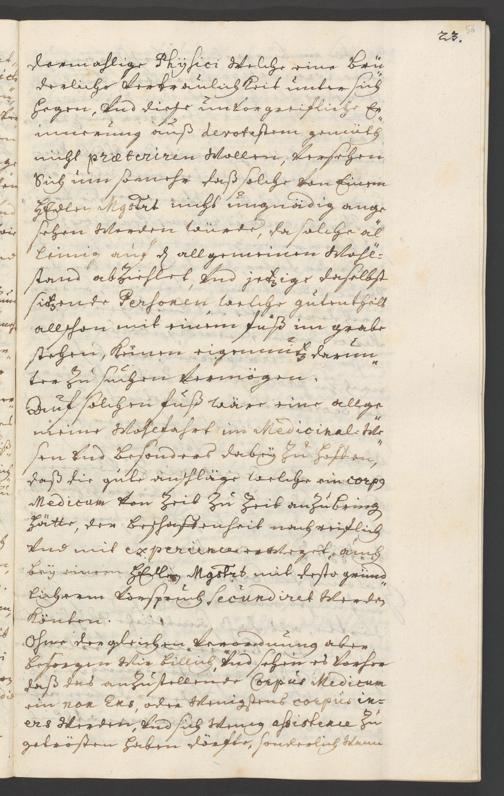 23.
dermahlige Physici Welche eine brü
derliche Vertraulichkeit unter sich
hegen, Und diese unvorgreifliche Er
innerung auß devotestem gemüth
nicht præteriren Wollen, Versehen
Sich um so mehr daß solche von Einem
HEdlen Mgstrt nicht ungnädig ange
sehen Werden würde, da solche al
leinig auf d allgemeinen Wohl-
stand abziehlet, Und jetzige daselbst
sitzende Personen welche gutentheils
allschon mit einem fuß im grabe
stehen, keinen eigennutz darun
ter zu suchen vermögen.
Auf solchen fuß wäre eine allge
meine Wohlfahrt im Medicinal-We
sen Und besonders dabey zu hoffen,
daß die gute anschläge welche ein corpg
Medicum von Zeit zu Zeit anzubring
hätte, der beschaffenheit nach reiflich
Und mit experience erweget, auch
bey einem HEdlen Mgstrt mit desto gründ
licherm Vorspruch secundiret Werden
könten.
Ohne dergleichen Verordnung aber
besorgen Wir billich, Und sehen es vorher
daß das anzustellende Corpus Medicum
ein non Ens, oder Wenigstens corpus in-
ers Werden, Und sich Wenig assistence zu
getrösten haben dörfte, sonderlich Wann